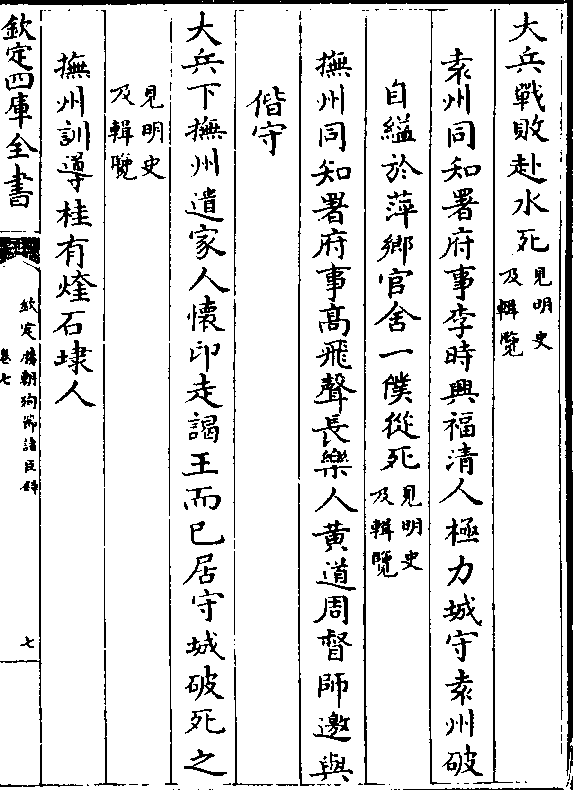 大兵戰敗赴水死見明史及輯覽
袁州同知署府事李時興福清人極力城守袁州破
自縊於萍鄉官舍一僕從死見明史及輯覽
撫州同知署府事高飛聲長樂人黄道周督師邀與
偕守
大兵下撫州遣家人懷印走謁王而已居守城破死之
見明史及輯覽
撫州訓導桂有煃石埭人
欽定四庫全書
欽定勝朝殉節諸臣錄
卷七
七